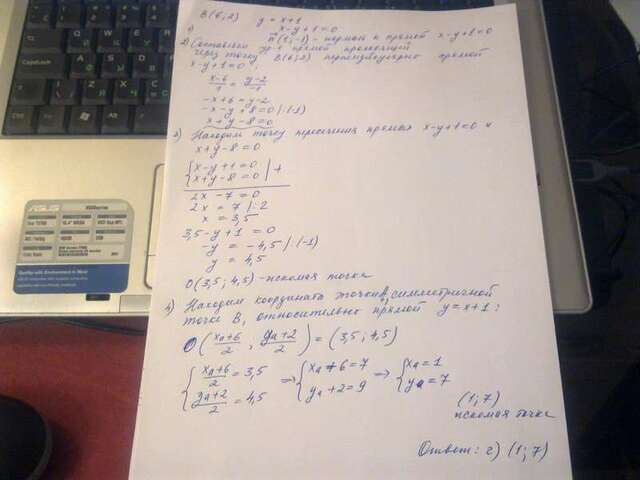 B(6;2) y = x+1
1) x-y+1=0
n(1;-1) - нормаль к прямой x-y+1=0
2) Составляем ур-е прямой проходящей
через точку B(6;2) перпендикулярно прямой
x-y+1=0:
(x-6)/1 = (y-2)/-1
-x+6 = y-2
-x-y+8=0 |·(-1)
x+y-8=0
3) Находим точку пересечения прямых x-y+1=0 и
x+y-8=0
{x-y+1=0
{x+y-8=0 | +
2x-7=0
2x = 7 |:2
x = 3,5
3,5-y+1=0
-y = -4,5 |·(-1)
y = 4,5
O(3,5; 4,5) - искомая точка
4) Находим координаты точки A, симметричной
точке B, относительно прямой y=x+1:
O((xa+6)/2, (ya+2)/2) = (3,5; 4,5)
{(xa+6)/2 = 3,5 => {xa+6=7 => {xa=1
{(ya+2)/2 = 4,5 {ya+2=9 {ya=7
(1;7)
искомая точка
Ответ: г) (1;7)
ASUS